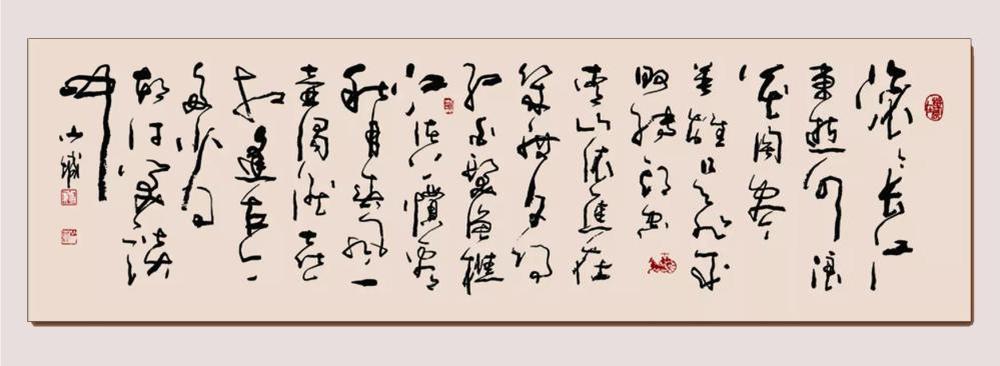 滚滚长江
東逝水浪
花淘尽
英雄是非成
败转头空
青山依舊在
几度夕阳
红白髮渔樵
江渚上惯看
秋月春风一
壶濁酒喜
相逢古今
多少事
都付笑谈
中